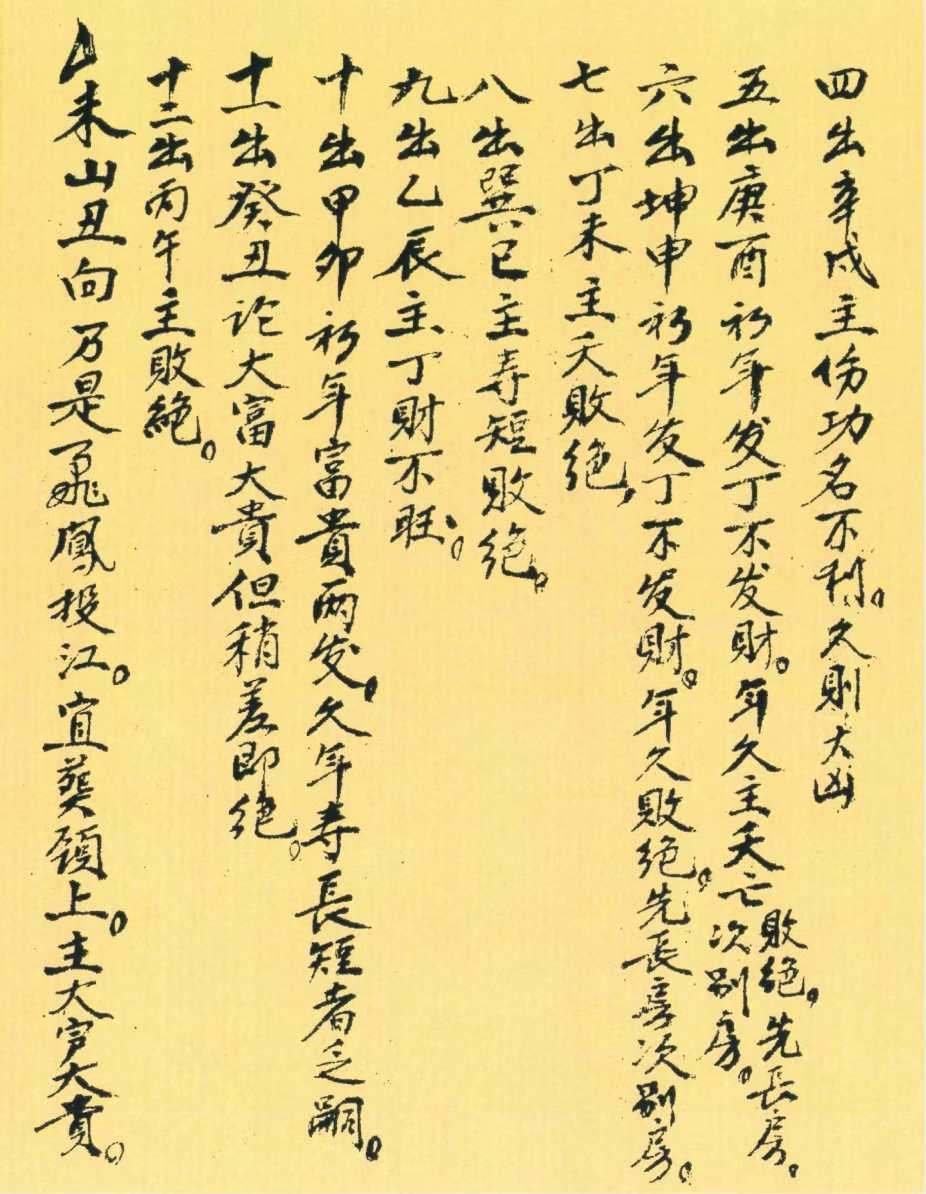 四出辛戌主伤功名不利。久則大凶
五出庚酉初年发丁不发財。年久主夭亡敗絕。先長房。次别房。
六出坤申初年发丁不发財。年久敗絕。先長房次别房。
七出丁未主夭敗绝,
八出巽巳主寿短敗绝。
九出乙辰主丁財不旺。
十出甲卯初年富貴两发。久年寿長短者乏嗣。
十一出癸丑论大富大貴但稍差即绝。
十二出丙午主敗絕。
未山丑向乃是鳳投江。宜葵頭上。主大富大貴。